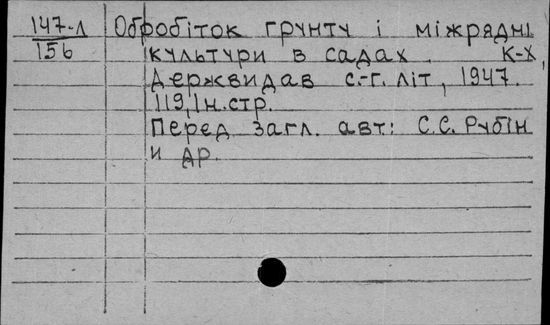 147-л Обробіток грунту і міжрядні
156 культури в садах. К-Х,
Держвидав с.-г. літ, 1947.
119,1н.стр.
Перед загл. авт: С.С. Рубін
и др.